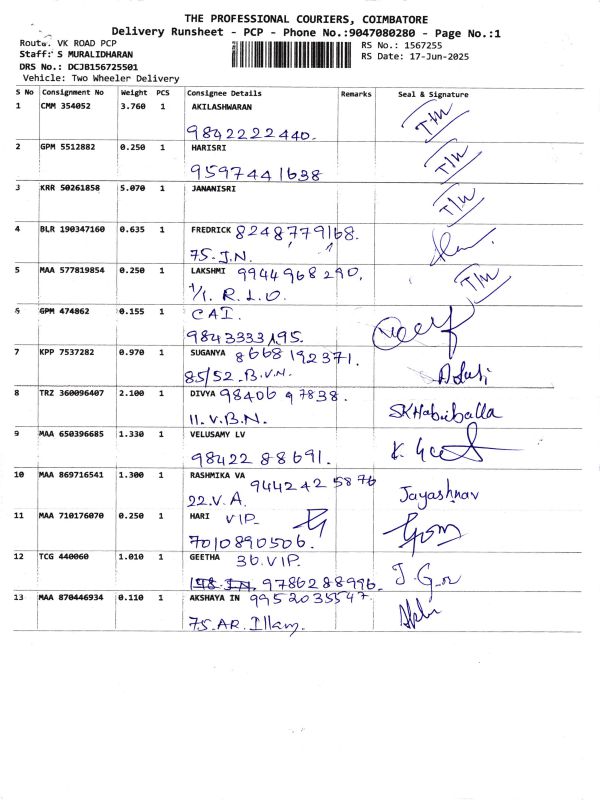 THE PROFESSIONAL COURIERS, COIMBATORE
Delivery Runsheet - PCP - Phone No.:9047080280 - Page No.:1
Route: VK ROAD PCP
RS No.: 1567255
Staff: S MURALIDHARAN
RS Date: 17-Jun-2025
DRS No.: DCJB156725501
Vehicle: Two Wheeler Delivery
S No Consignment No Weight PCS Consignee Details Remarks Seal & Signature
1 CMM 354052 3.760 1 AKILASHWARAN
9842222440.
2 GPM 5512882 0.250 1 HARISRI
9597441638
3 KRR 50261858 5.070 1 JANANISRI
4 BLR 190347160 0.635 1 FREDRICK 8248779168.
75. J.N.
5 MAA 577819854 0.250 1 LAKSHMI 9944968290.
1/1. R.L.O.
6 GPM 474862 0.155 1 CAI.
9843333195.
7 KPP 7537282 0.970 1 SUGANYA 8668192371.
85/52. B.V.N.
8 TRZ 360096407 2.100 1 DIVYA 9840697838.
11. V.B.N. SKHabiballa
9 MAA 650396685 1.330 1 VELUSAMY LV
9842288691.
10 MAA 869716541 1.300 1 RASHMIKA VA 9442425876
22. V.A. Jayashnav
11 MAA 710176070 0.250 1 HARI VIP
7010890506.
12 TCG 440060 1.010 1 GEETHA 36. VIP.
9786288996.
13 MAA 870446934 0.110 1 AKSHAYA IN 9952035547.
75. AR. Illam.